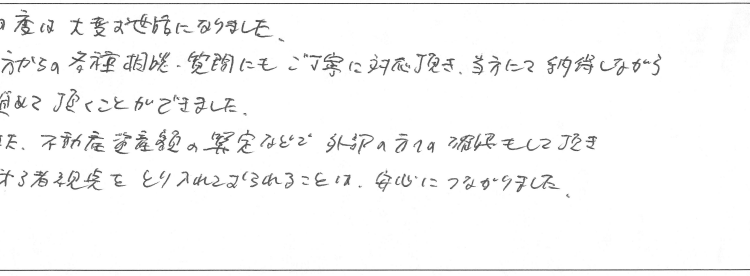 度は 大変お世話になりました、
方からの 各種相談・質問にも ご丁寧に対応頂き、当方にて 納得しながら
進めて 頂くことができました、
た、不動産資産額の 算定などで 外部の方での 確認もして頂き
する者視点を とり入れておられることは、安心につながりました、